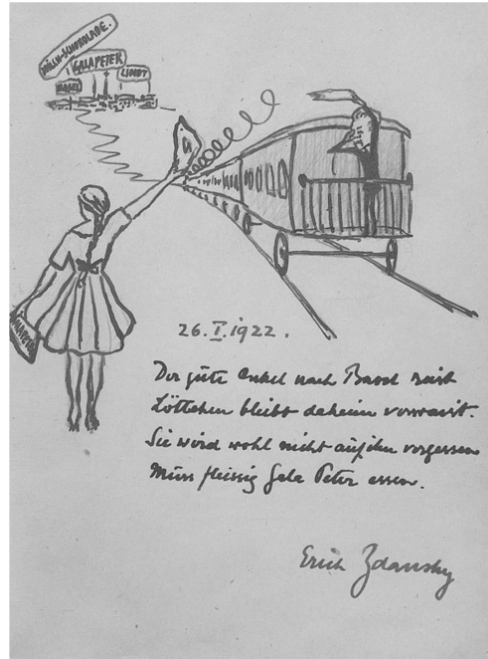 MILCH-SCHOKOLADE.
GALA PETER
LINDT
BASEL
G
26.I.1922.
Der gute Onkel nach Basel reist
Löttchen bleibt daheim verwaist.
Sie wird wohl nicht auf ihn vergessen
Muss fleissig Gala Peter essen.
Erich Zdansky